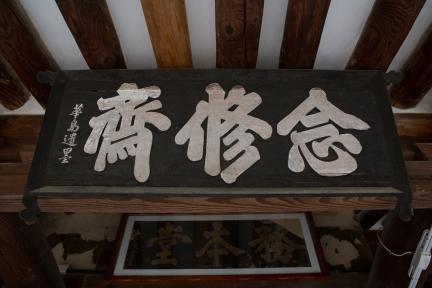 念修齋
華島遺墨
務本堂